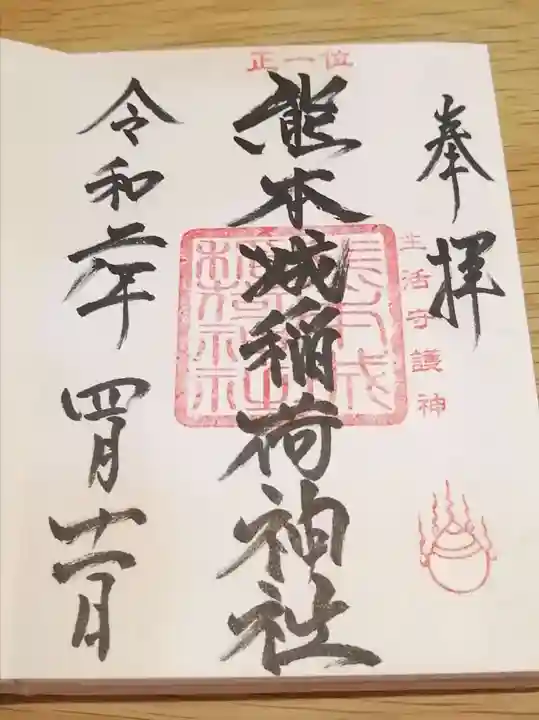 奉拝
生活守護神
正一位
熊本城稲荷神社
令和二年四月十一日